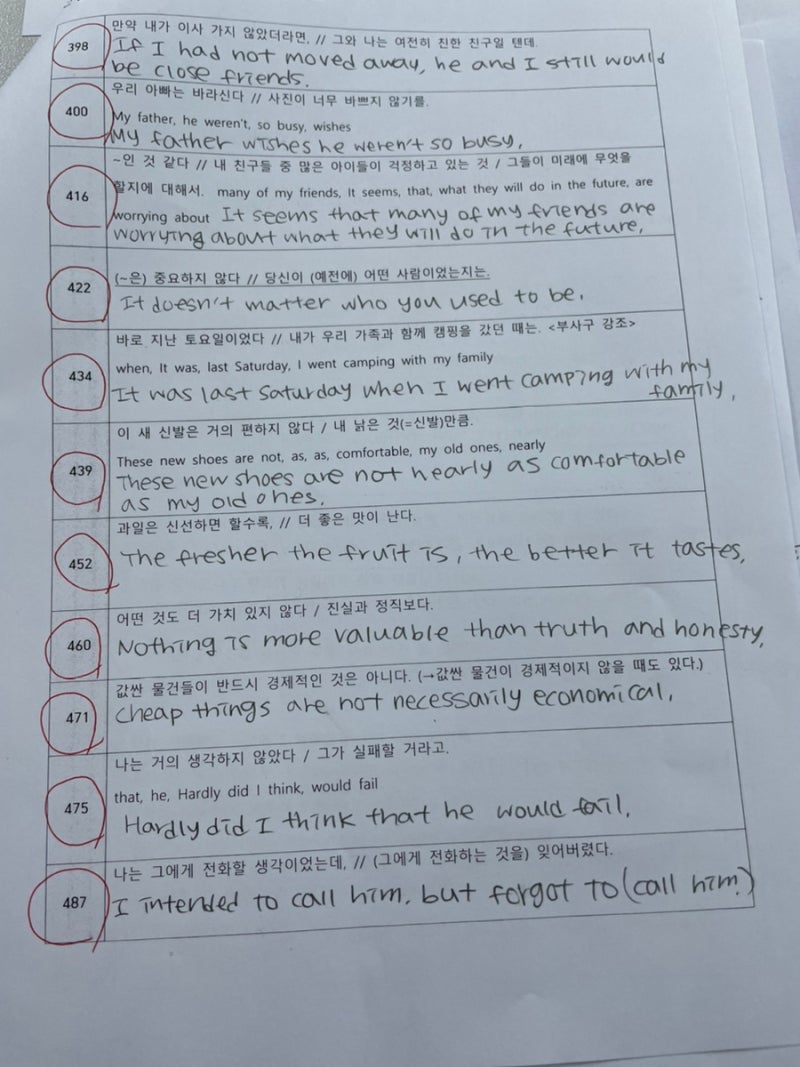 398
만약 내가 이사 가지 않았더라면, // 그와 나는 여전히 친한 친구일 텐데.
If I had not moved away, he and I still would
be close friends.
400
우리 아빠는 바라신다 // 사진이 너무 바쁘지 않기를.
My father, he weren't, so busy, wishes
My father wishes he weren't so busy.
416
~인 것 같다 // 내 친구들 중 많은 아이들이 걱정하고 있는 것 / 그들이 미래에 무엇을
할지에 대해서. many of my friends, It seems, that, what they will do in the future, are
worrying about It seems that many of my friends are
worrying about what they will do in the future.
422
(~은) 중요하지 않다 // 당신이 (예전에) 어떤 사람이었는지는.
It doesn't matter who you used to be.
434
바로 지난 토요일이었다 // 내가 우리 가족과 함께 캠핑을 갔던 때는. <부사구 강조>
when, It was, last Saturday, I went camping with my family
It was last saturday when I went camping with my
family.
439
이 새 신발은 거의 편하지 않다 / 내 낡은 것(=신발)만큼.
These new shoes are not, as, as, comfortable, my old ones, nearly
These new shoes are not nearly as comfortable
as my old ones.
452
과일은 신선하면 할수록, // 더 좋은 맛이 난다.
The fresher the fruit is, the better it tastes.
460
어떤 것도 더 가치 있지 않다 / 진실과 정직보다.
Nothing is more valuable than truth and honesty.
471
값싼 물건들이 반드시 경제적인 것은 아니다. (→값싼 물건이 경제적이지 않을 때도 있다.)
Cheap things are not necessarily economical.
475
나는 거의 생각하지 않았다 / 그가 실패할 거라고.
that, he, Hardly did I think, would fail
Hardly did I think that he would fail.
487
나는 그에게 전화할 생각이었는데, // (그에게 전화하는 것을) 잊어버렸다.
I intended to call him. but forgot to (call him.)